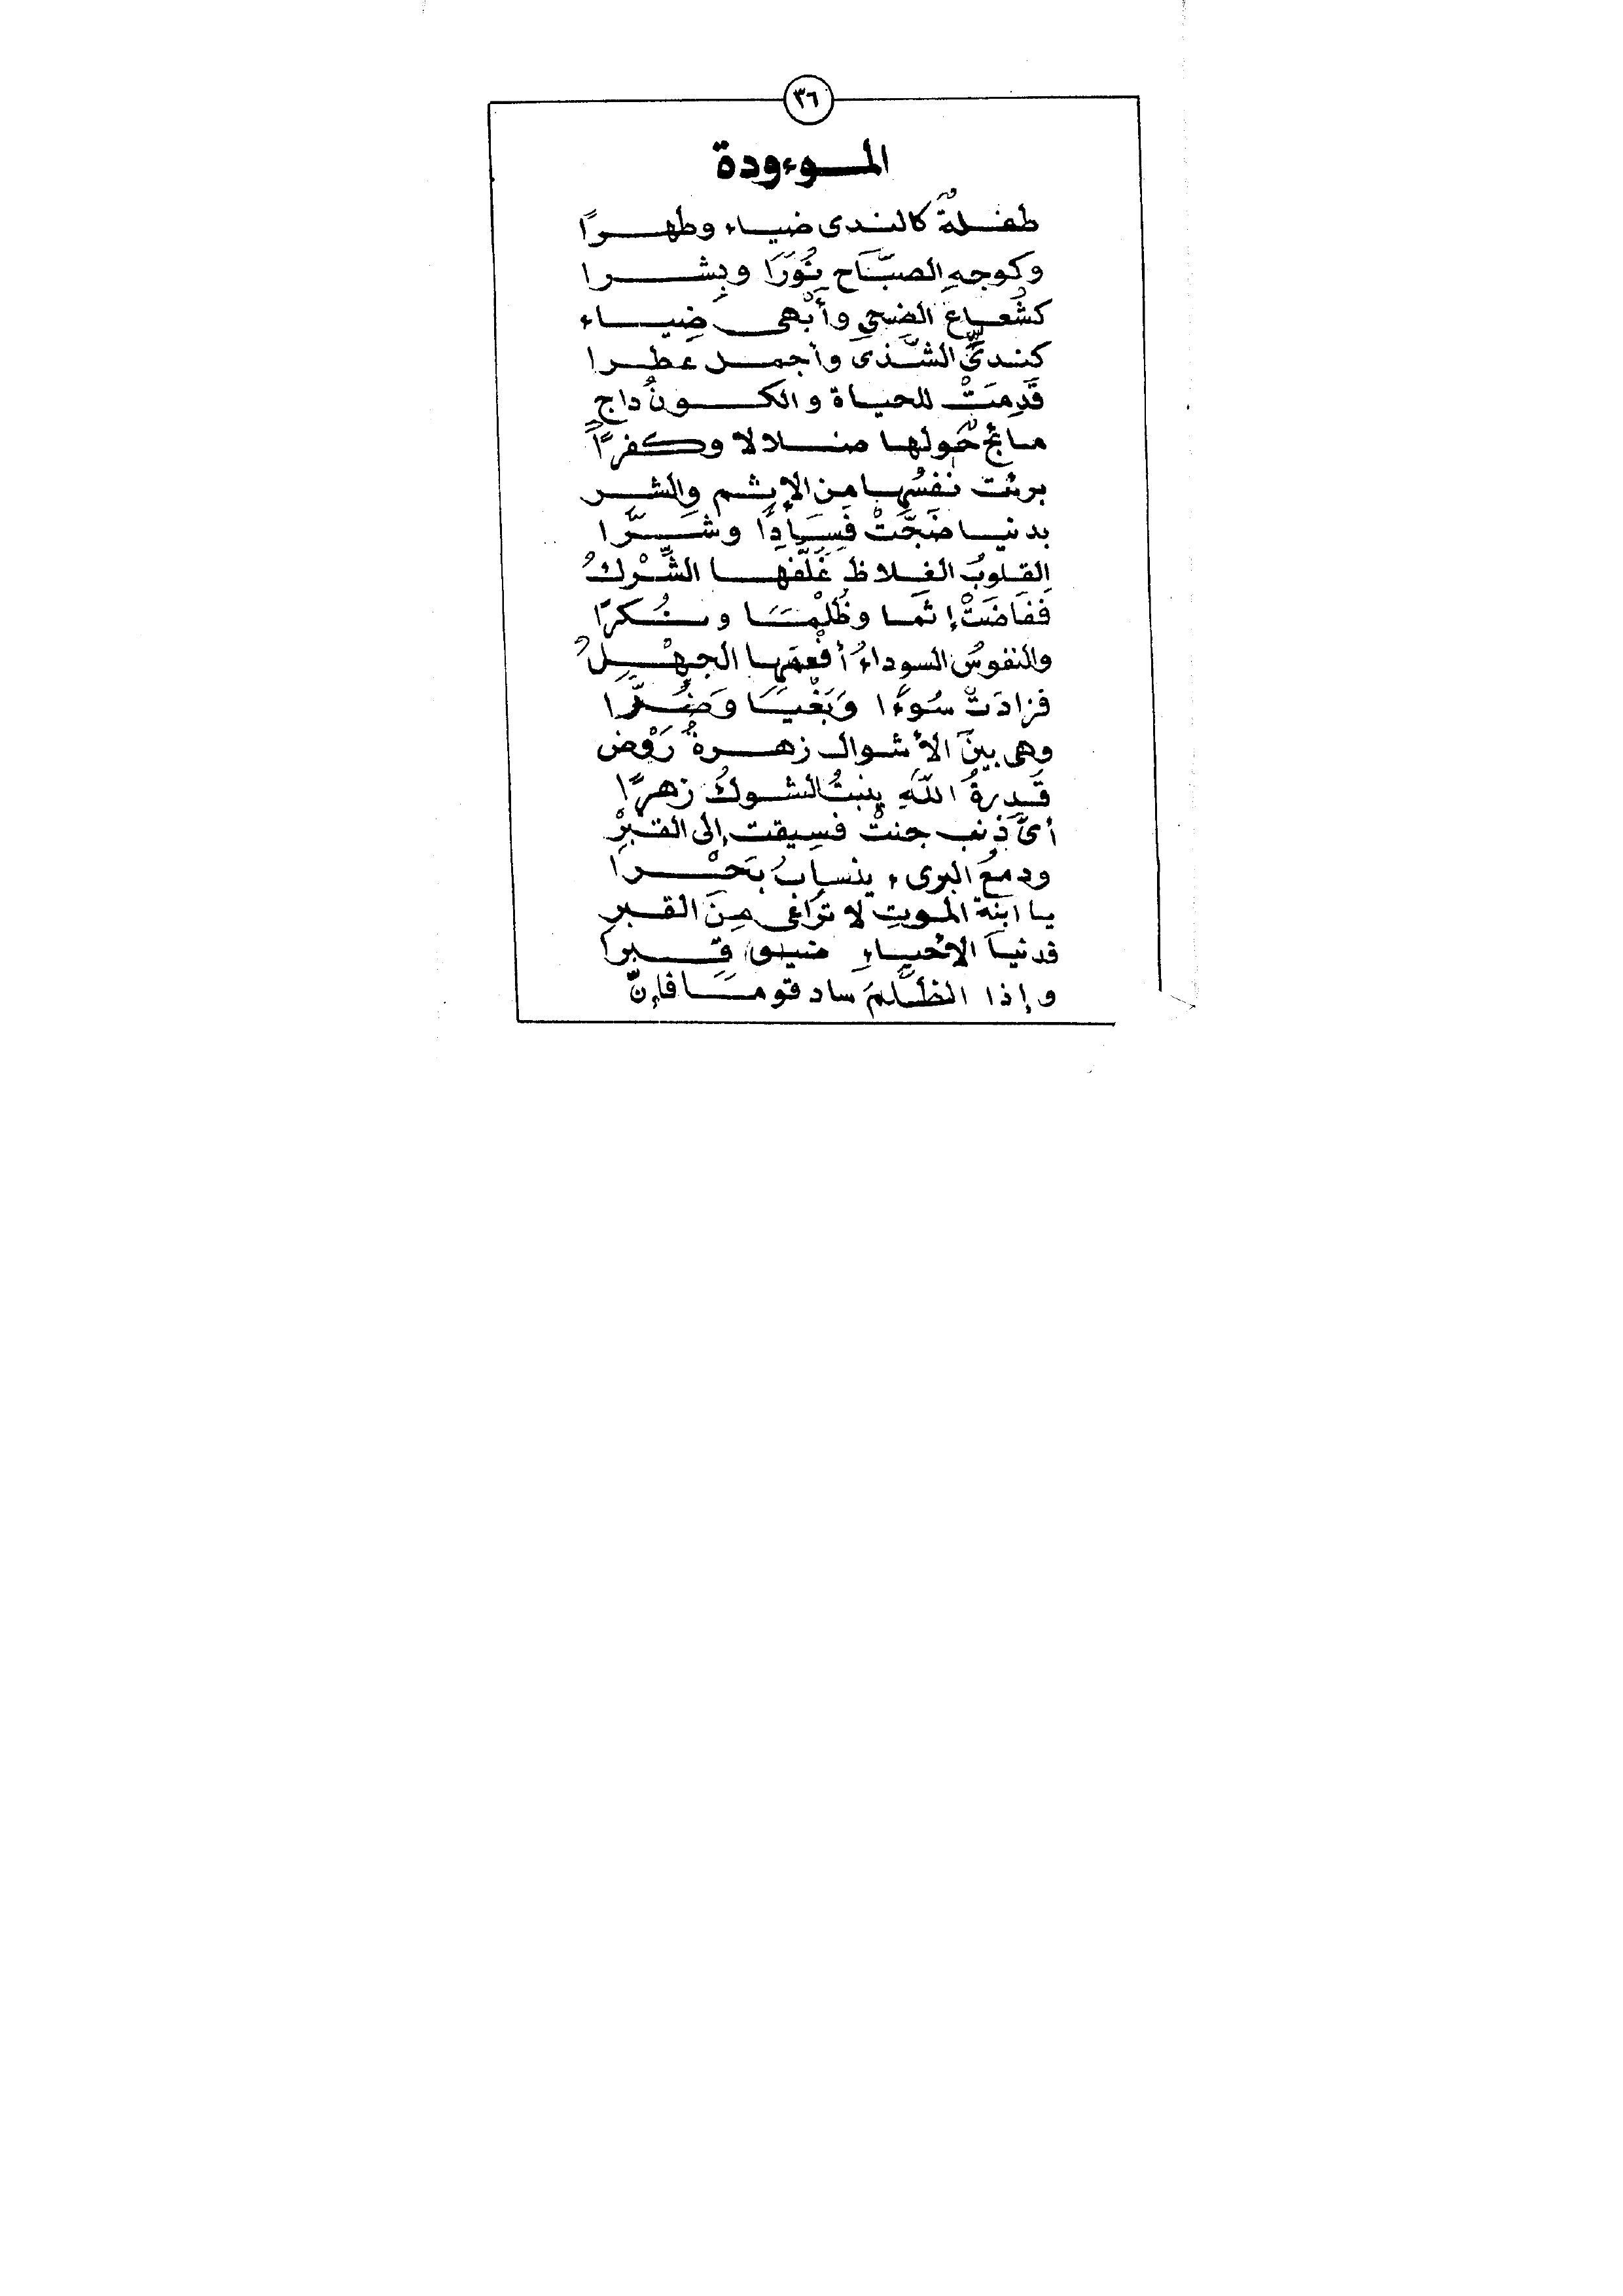 ٣٦
الموءودة
طفلةٌ كالندى ضياء وطهرًا
وكوجهِ الصبَّاح نُورًا وبِشرا
كشُعاعِ الضحى وأَبْهى ضِياء
كندىِّ الشَّذى وأجمل عطرا
قَدِمَتْ للحياة والكونُ داجٍ
مائجٌ حَولها ضلالا وكفرًا
برئت نفسُها من الإِثم والشر
بدنيا ضَجَّتْ فَسَادًا وشَرَّا
القلوبُ الغلاظ غَلَّفها الشِّرْكُ
فَفَاضَتْ إثمَا وظُلْمَا ونُكرًا
والنفوسُ السوداءُ أفْعمَها الجهْلُ
فزادَتْ سُوءًا وَبَغْيَا وَضُرَّا
وهى بينَ الأشواك زهرةُ رَوْض
قَدِرةُ اللَّهِ ينبتُ الشوكُ زهرًا
أىَّ ذنب جنتْ فسيقت إلى القبْرِ
ودمعُ البرىء ينسابُ بَحْرا
يا ابنة الموتِ لا تراعى مِنَ القبرِ
فدنيا الأحياءِ ضيق قبرا
وإذا الظُّلمَ ساد قومَا فإنّ